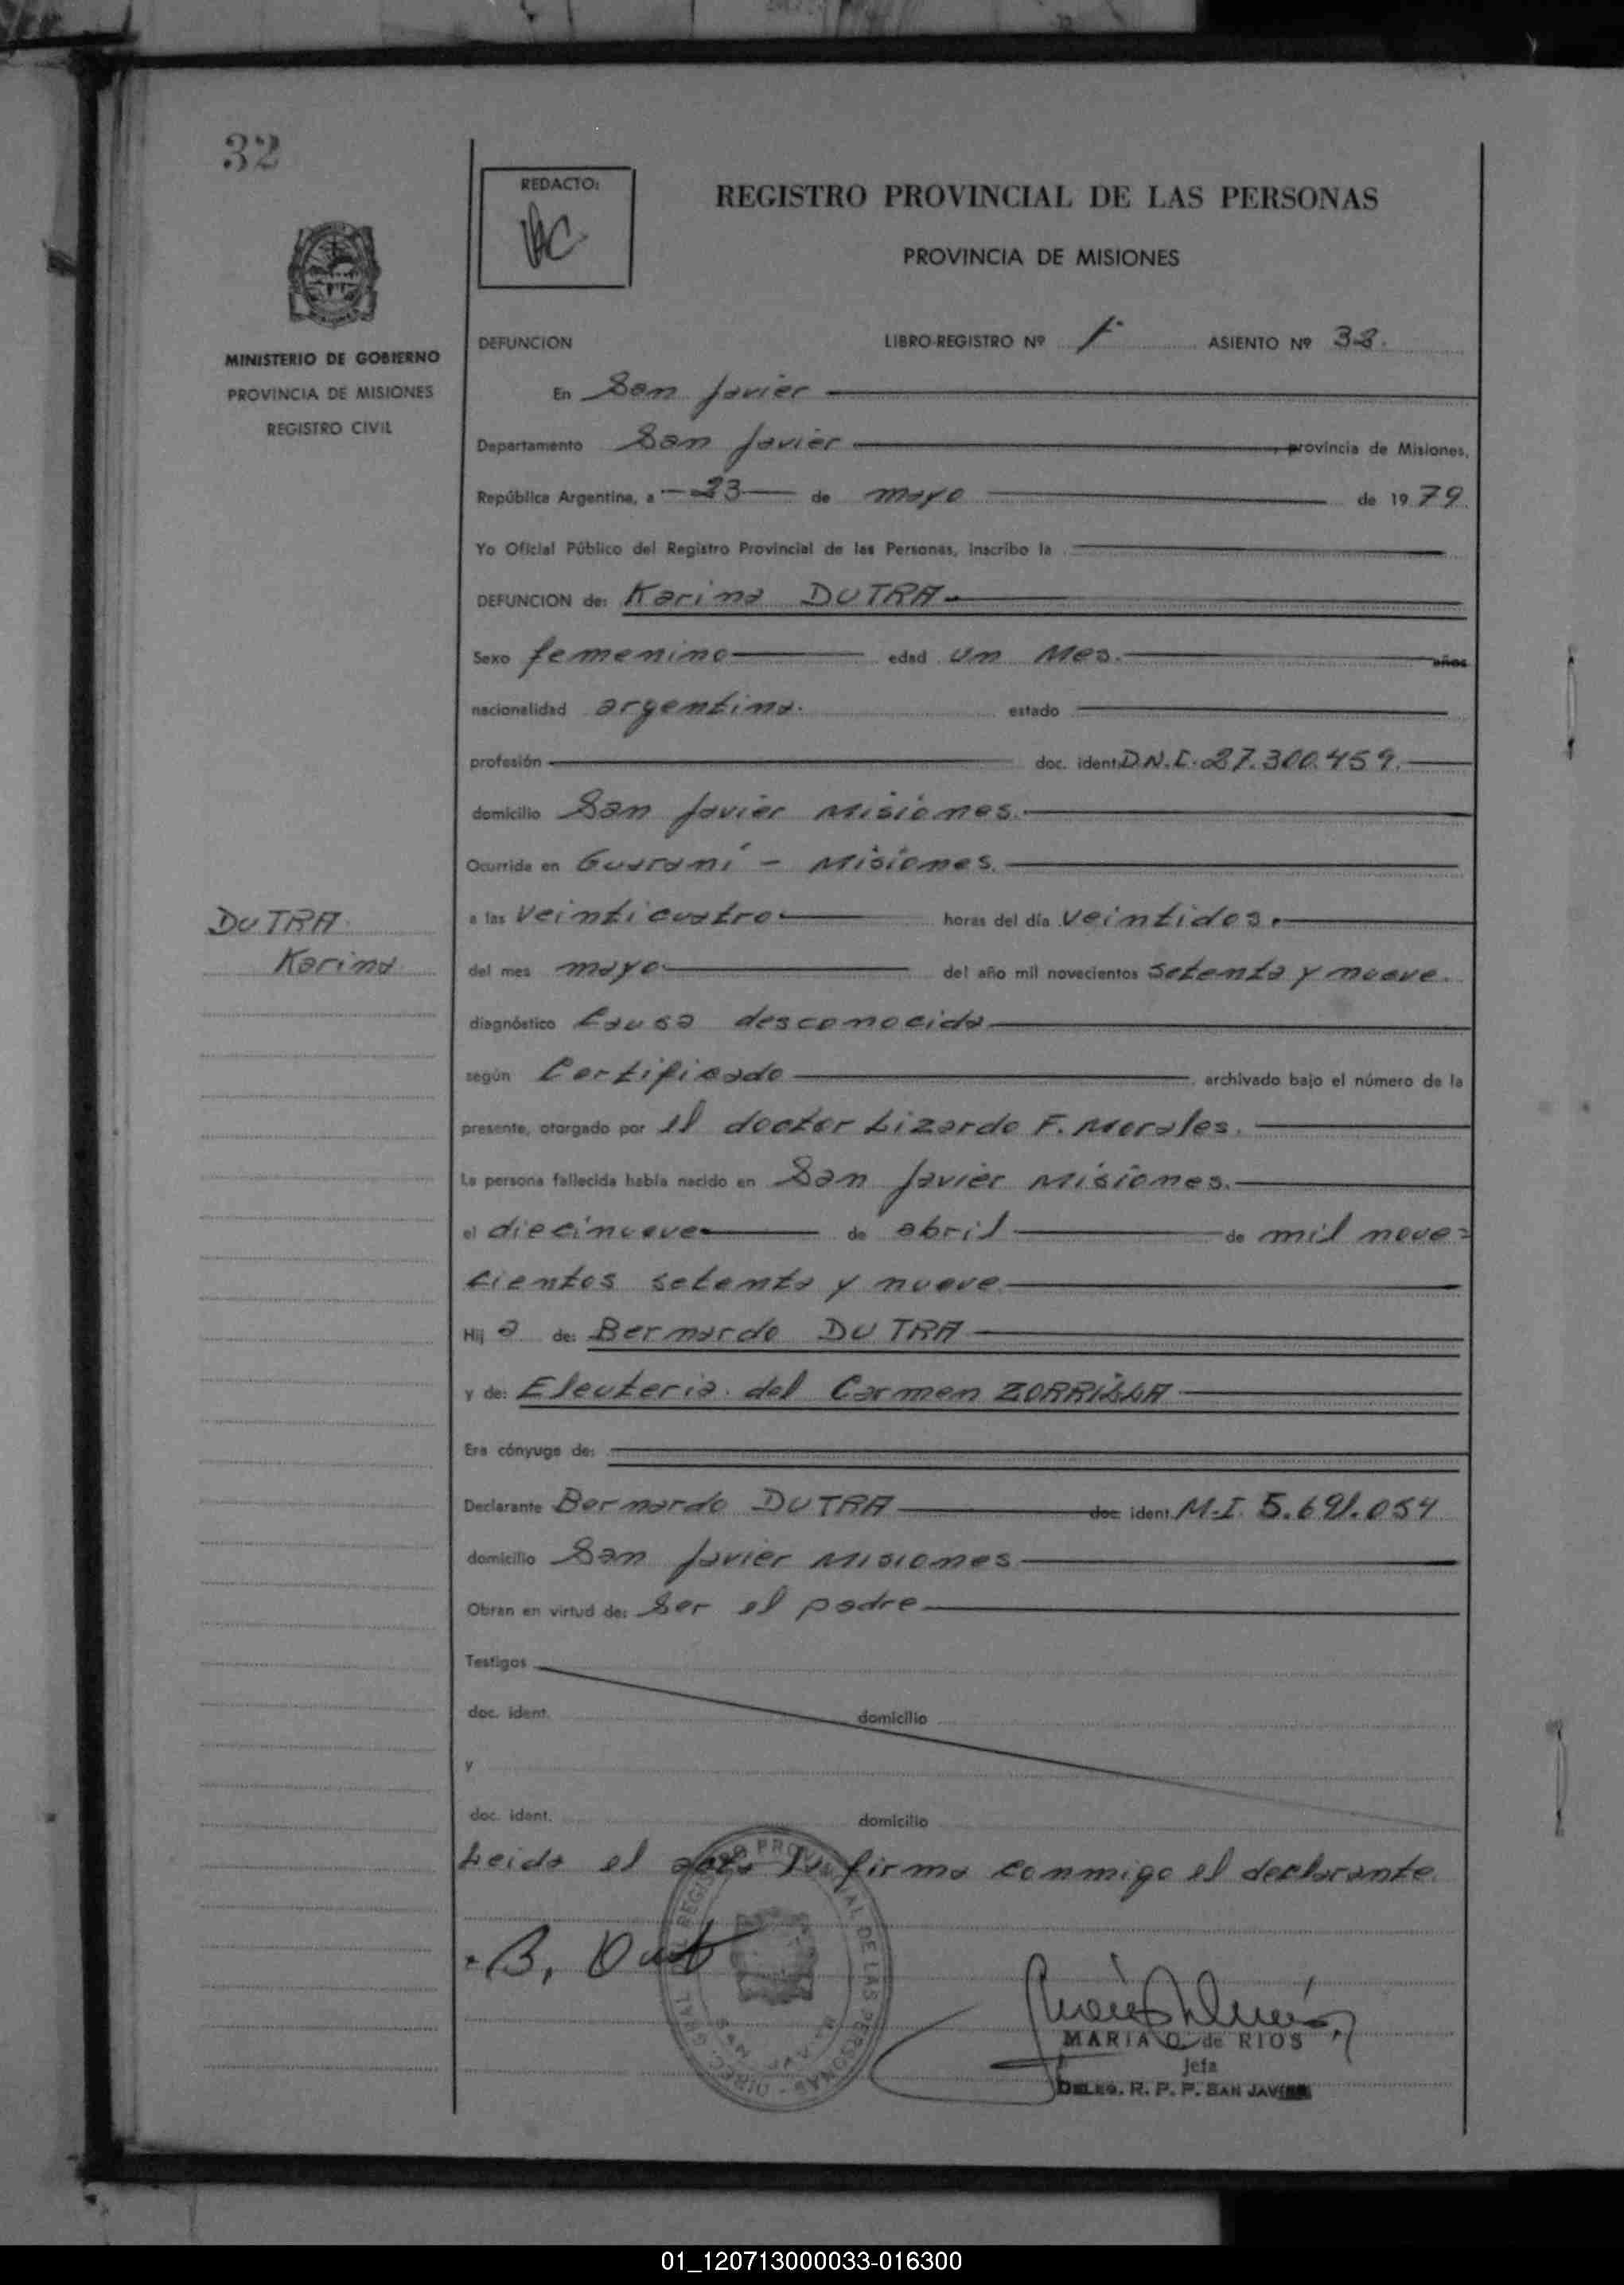 32
REDACTO:
REGISTRO PROVINCIAL DE LAS PERSONAS
PROVINCIA DE MISIONES
MINISTERIO DE GOBIERNO
PROVINCIA DE MISIONES
REGISTRO CIVIL
DEFUNCION LIBRO-REGISTRO Nº 1º ASIENTO Nº 32.
En San Javier
Departamento San Javier, provincia de Misiones,
República Argentina, a 23 de mayo de 1979
Yo Oficial Público del Registro Provincial de las Personas, inscribo la
DEFUNCION de: Karina DUTRA
Sexo femenino edad un mes. años
nacionalidad argentina. estado
profesión doc. ident. D.N.I. 27.300.459.
domicilio San Javier Misiones.
Ocurrida en Guaraní - Misiones.
DUTRA
Karina
a las veinticuatro horas del día veintidos.
del mes mayo del año mil novecientos setenta y nueve.
diagnóstico Causa desconocida
según Certificado, archivado bajo el número de la
presente, otorgado por el doctor Lizardo F. Morales.
La persona fallecida había nacido en San Javier Misiones.
el diecinueve de abril de mil nove=
cientos setenta y nueve.
Hij a de: Bernardo DUTRA
y de: Eleuteria del Carmen ZORRILLA
Era cónyuge de:
Declarante Bernardo DUTRA doc. ident. M.I. 5.691.054
domicilio San Javier Misiones
Obran en virtud de: Ser el padre
Testigos
doc. ident. domicilio
y
doc. ident. domicilio
Leida el acta la firma conmigo el declarante.
REGISTRO PROVINCIAL DE LAS PERSONAS - DIREC. GRAL.
B. Dut
MARIA O. de RIOS
Jefa
DELEG. R. P. P. SAN JAVIER
01_120713000033-016300